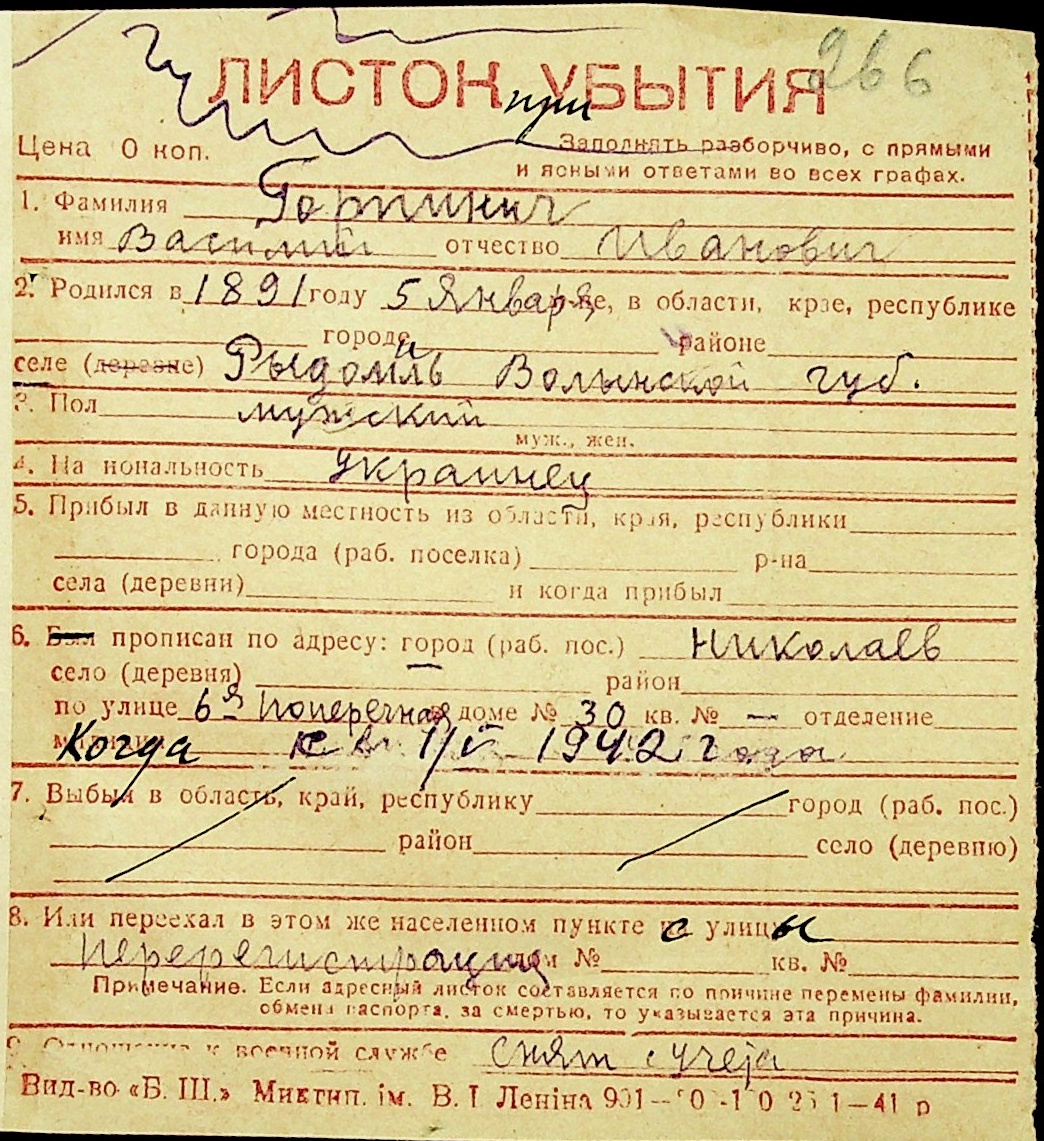 266
ЛИСТОК при УБЫТИЯ
Цена 0 коп.
Заполнять разборчиво, с прямыми
и ясными ответами во всех графах.
1. Фамилия Гортинич
имя Василий отчество Иванович
2. Родился в 1891 году 5 Января -ве, в области, крае, республике
городе районе
селе (деревне) Рыдомиль Волынской губ.
3. Пол мужской
муж., жен.
4. Национальность Украинец
5. Прибыл в данную местность из области, края, республики
города (раб. поселка) р-на
села (деревни) и когда прибыл
6. Был прописан по адресу: город (раб. пос.) Николаев
село (деревня) район
по улице 6я Поперечная в доме № 30 кв. № — отделение
милиции Когда 1/V 1942 года
7. Выбыл в область, край, республику город (раб. пос.)
район село (деревню)
8. Или переехал в этом же населенном пункте с улицы
Перерегистрация дом № кв. №
Примечание. Если адресный листок составляется по причине перемены фамилии,
обмена паспорта, за смертью, то указывается эта причина.
9. Отношение к военной службе снят с учета
Вид-во «Б. Ш.» Миктип. ім. В. І Леніна